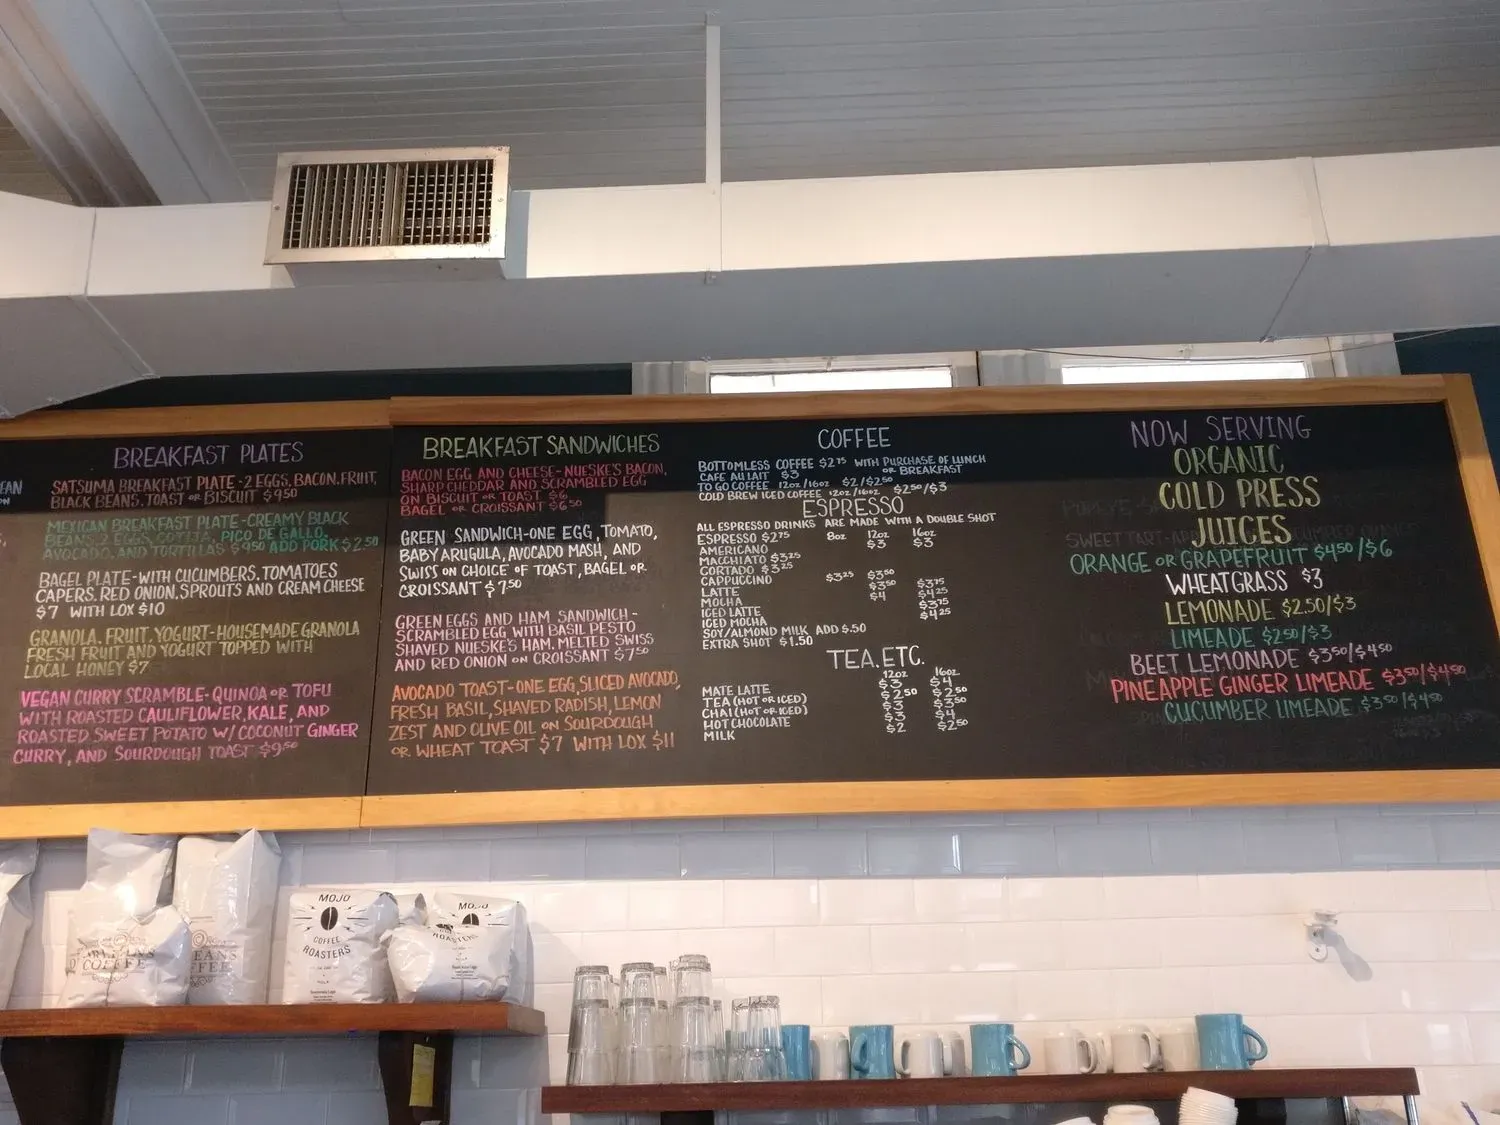 EAN
BREAKFAST PLATES
SATSUMA BREAKFAST PLATE - 2 EGGS, BACON, FRUIT,
BLACK BEANS, TOAST OR BISCUIT $9.50
MEXICAN BREAKFAST PLATE - CREAMY BLACK
BEANS, 2 EGGS, COTIJA, PICO DE GALLO,
AVOCADO, AND TORTILLAS $9.50 ADD PORK $2.50
BAGEL PLATE - WITH CUCUMBERS, TOMATOES
CAPERS, RED ONION, SPROUTS AND CREAM CHEESE
$7 WITH LOX $10
GRANOLA, FRUIT, YOGURT - HOUSEMADE GRANOLA
FRESH FRUIT AND YOGURT TOPPED WITH
LOCAL HONEY $7
VEGAN CURRY SCRAMBLE - QUINOA OR TOFU
WITH ROASTED CAULIFLOWER, KALE, AND
ROASTED SWEET POTATO W/ COCONUT GINGER
CURRY, AND SOURDOUGH TOAST $9.50
BREAKFAST SANDWICHES
BACON EGG AND CHEESE - NUESKE'S BACON,
SHARP CHEDDAR AND SCRAMBLED EGG
ON BISCUIT OR TOAST $6
BAGEL OR CROISSANT $6.50
GREEN SANDWICH - ONE EGG, TOMATO,
BABY ARUGULA, AVOCADO MASH, AND
SWISS ON CHOICE OF TOAST, BAGEL OR
CROISSANT $7.50
GREEN EGGS AND HAM SANDWICH -
SCRAMBLED EGG WITH BASIL PESTO
SHAVED NUESKE'S HAM, MELTED SWISS
AND RED ONION ON CROISSANT $7.50
AVOCADO TOAST - ONE EGG, SLICED AVOCADO,
FRESH BASIL, SHAVED RADISH, LEMON
ZEST AND OLIVE OIL ON SOURDOUGH
OR WHEAT TOAST $7 WITH LOX $11
COFFEE
BOTTOMLESS COFFEE $2.75 WITH PURCHASE OF LUNCH
OR BREAKFAST
CAFE AU LAIT $3
TO GO COFFEE 12oz/16oz $2/$2.50
COLD BREW ICED COFFEE 12oz/16oz $2.50/$3
ESPRESSO
ALL ESPRESSO DRINKS ARE MADE WITH A DOUBLE SHOT
ESPRESSO $2.75 8oz 12oz 16oz
AMERICANO $3 $3
MACCHIATO $3.25
CORTADO $3.25
CAPPUCCINO $3.25 $3.50
LATTE $3.50 $3.75
MOCHA $4 $4.25
ICED LATTE $3.75
ICED MOCHA $4.25
SOY/ALMOND MILK ADD $.50
EXTRA SHOT $1.50
TEA, ETC.
12oz 16oz
MATE LATTE $3 $4
TEA (HOT OR ICED) $2.50 $2.50
CHAI (HOT OR ICED) $3 $3.50
HOT CHOCOLATE $3 $4
MILK $2 $2.50
NOW SERVING
ORGANIC
COLD PRESS
JUICES
ORANGE OR GRAPEFRUIT $4.50/$6
WHEATGRASS $3
LEMONADE $2.50/$3
LIMEADE $2.50/$3
BEET LEMONADE $3.50/$4.50
PINEAPPLE GINGER LIMEADE $3.50/$4.50
CUCUMBER LIMEADE $3.50/$4.50
COFFEE
EANS
FFEE
MOJO
COFFEE
ROASTERS
MOJO
ROASTERS